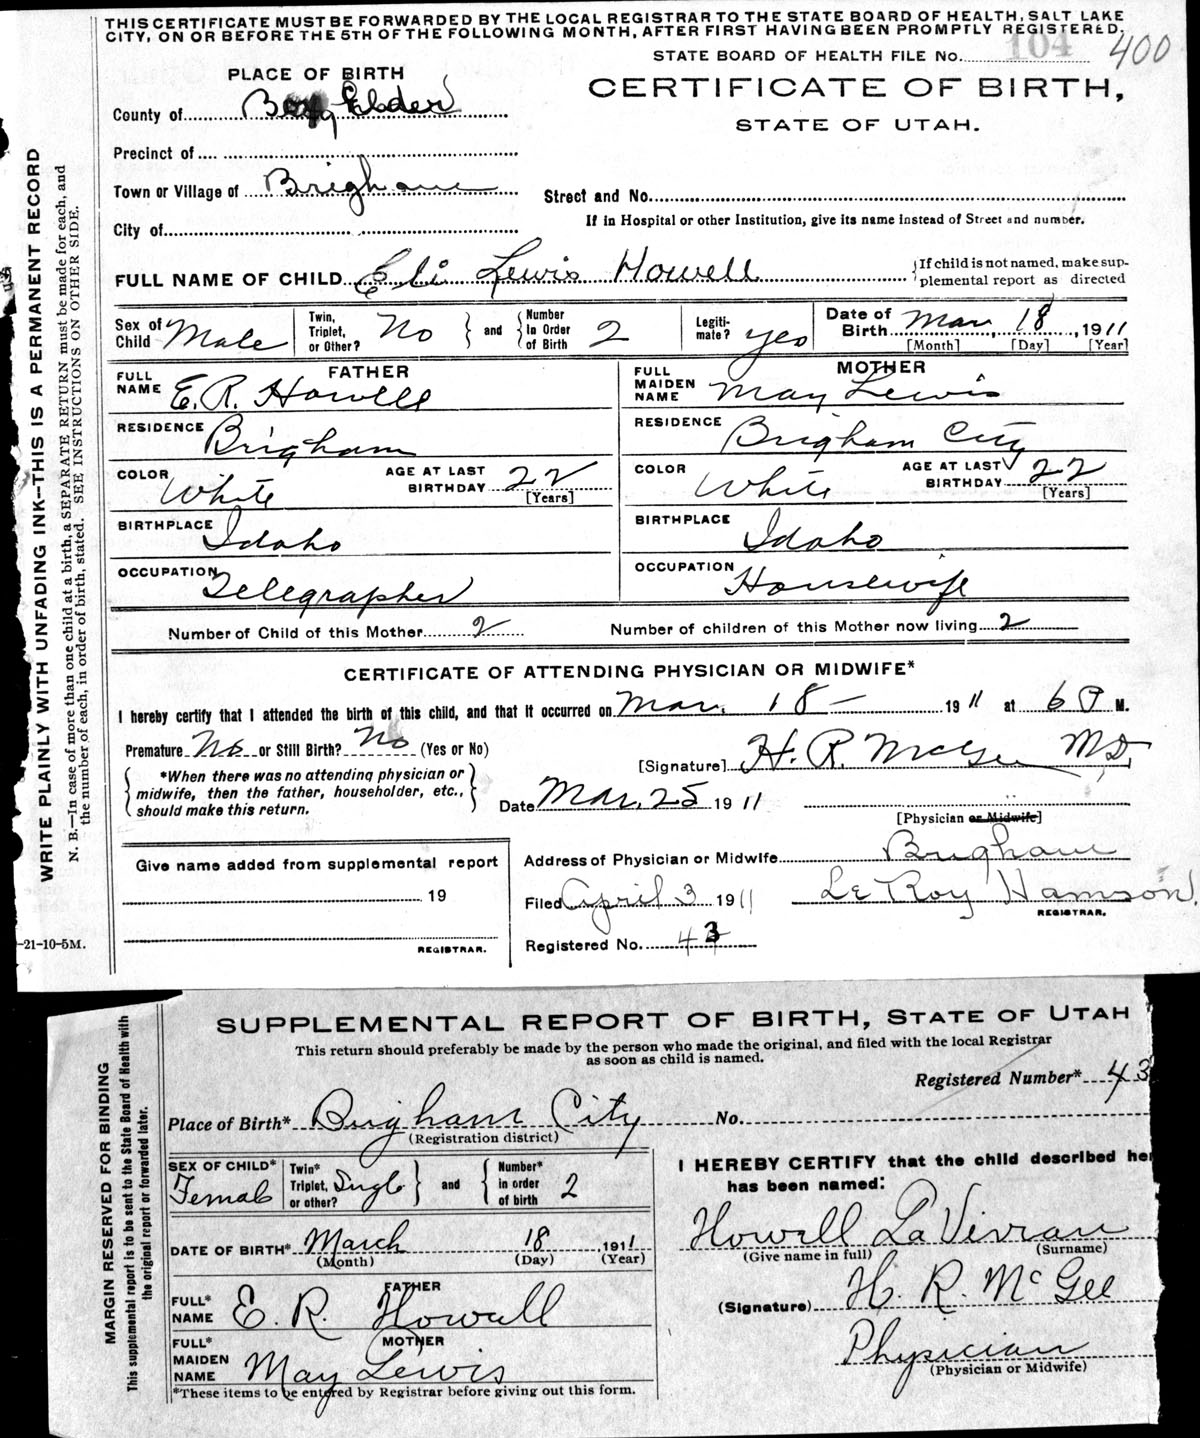 THIS CERTIFICATE MUST BE FORWARDED BY THE LOCAL REGISTRAR TO THE STATE BOARD OF HEALTH, SALT LAKE
CITY, ON OR BEFORE THE 5TH OF THE FOLLOWING MONTH, AFTER FIRST HAVING BEEN PROMPTLY REGISTERED.
STATE BOARD OF HEALTH FILE No. 104 400
PLACE OF BIRTH
CERTIFICATE OF BIRTH,
STATE OF UTAH.
County of Box Elder
Precinct of
Town or Village of Brigham
Street and No.
If in Hospital or other Institution, give its name instead of Street and number.
City of
FULL NAME OF CHILD Eli Lewis Howell
{If child is not named, make sup-
plemental report as directed
Sex of Child Male
Twin, Triplet, or Other? No } and { Number In Order of Birth 2
Legiti-mate? yes
Date of Birth Mar. 18, 1911
[Month] [Day] [Year]
FATHER
FULL NAME E. R. Howell
RESIDENCE Brigham
COLOR White AGE AT LAST BIRTHDAY 22 [Years]
BIRTHPLACE Idaho
OCCUPATION Telegrapher
MOTHER
FULL MAIDEN NAME May Lewis
RESIDENCE Brigham City
COLOR White AGE AT LAST BIRTHDAY 22 [Years]
BIRTHPLACE Idaho
OCCUPATION Housewife
Number of Child of this Mother 2 Number of children of this Mother now living 2
CERTIFICATE OF ATTENDING PHYSICIAN OR MIDWIFE*
I hereby certify that I attended the birth of this child, and that it occurred on Mar. 18 — 1911 at 6 P M.
Premature No or Still Birth? No (Yes or No)
{*When there was no attending physician or
midwife, then the father, householder, etc.,
should make this return.}
[Signature] H. R. McGee MD.
Date Mar. 25 1911
[Physician or Midwife]
Give name added from supplemental report
19
REGISTRAR.
Address of Physician or Midwife Brigham
Filed April 3 1911 Le Roy Hamson.
REGISTRAR.
Registered No. 43
-21-10-5M.
WRITE PLAINLY WITH UNFADING INK—THIS IS A PERMANENT RECORD
N. B.—In case of more than one child at a birth, a SEPARATE RETURN must be made for each, and
the number of each, in order of birth, stated. SEE INSTRUCTIONS ON OTHER SIDE.
SUPPLEMENTAL REPORT OF BIRTH, STATE OF UTAH
This return should preferably be made by the person who made the original, and filed with the local Registrar
as soon as child is named.
Registered Number* 43
Place of Birth* Brigham City No.
(Registration district)
SEX OF CHILD* Female
Twin* Triplet, or other? Single } and { Number* in order of birth 2
DATE OF BIRTH* March 18, 1911
(Month) (Day) (Year)
FATHER
FULL* NAME E. R. Howell
MOTHER
FULL* MAIDEN NAME May Lewis
*These items to be entered by Registrar before giving out this form.
I HEREBY CERTIFY that the child described he
has been named:
Howell LaVivian
(Give name in full) (Surname)
(Signature) H. R. McGee
Physician
(Physician or Midwife)
MARGIN RESERVED FOR BINDING
This supplemental report is to be sent to the State Board of Health with
the original report or forwarded later.